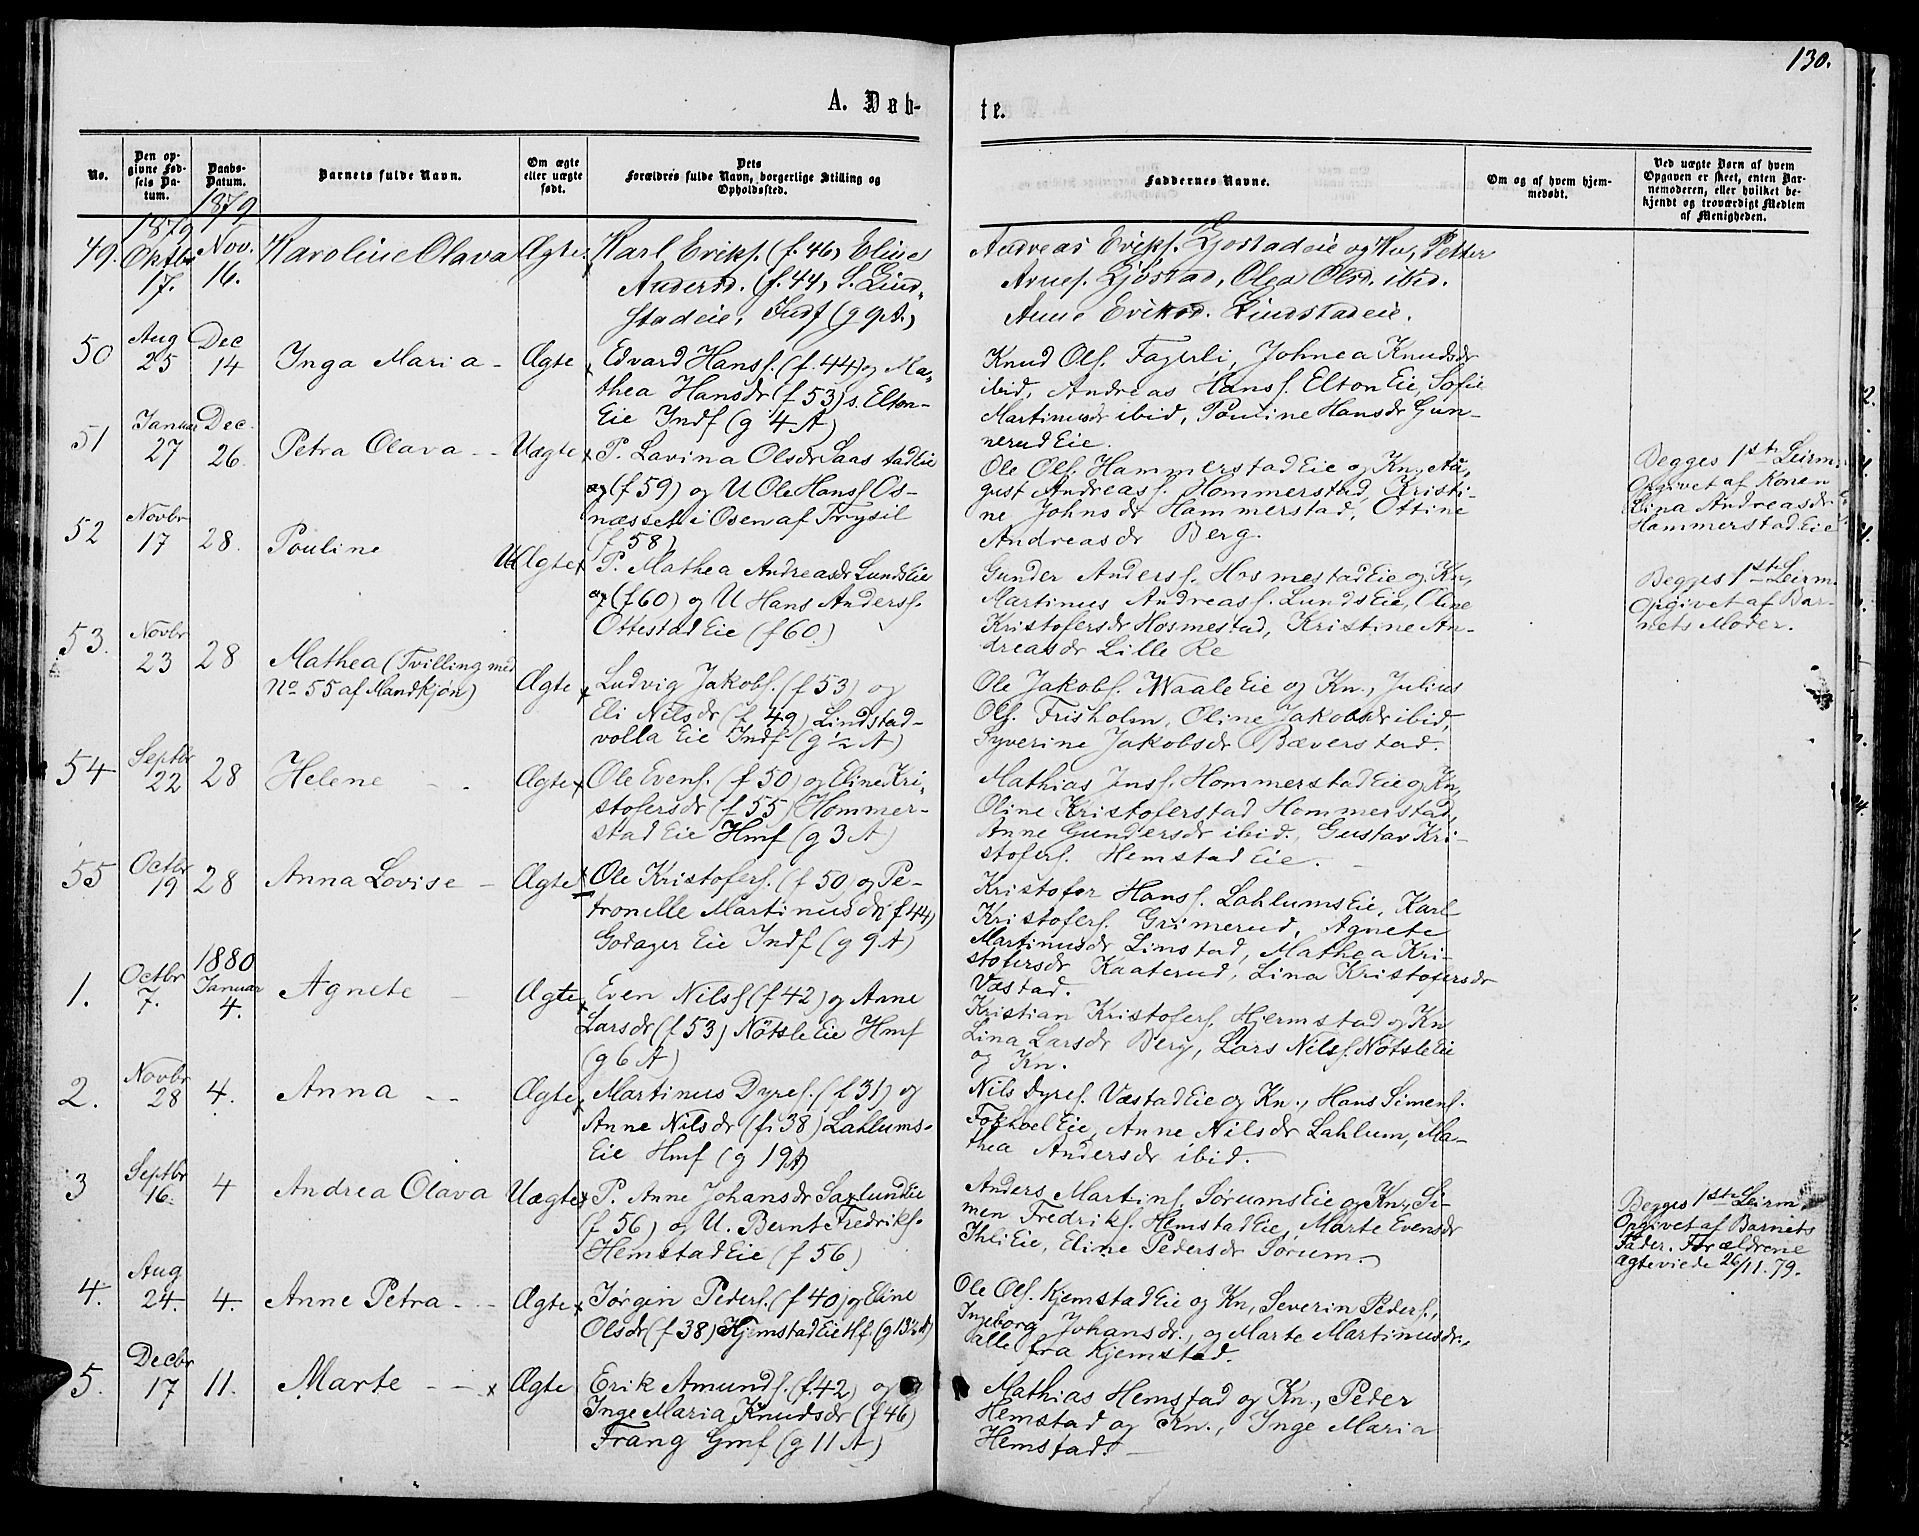 130.
A. Døb-
te.
No.
Den op-
givne Fød-
sels Da-
tum.
Daabs-
Datum.
Barnets fulde Navn.
Om ægte
eller uægte
født.
Dets
Forældres fulde Navn, borgerlige Stilling og
Opholdssted.
Faddernes Navne.
Om og af hvem hjem-
medøbt.
Ved uægte Børn af hvem
Opgaven er skeet, enten Bar-
nemoderen, eller hvilket be-
kjendt og troværdigt Medlem
af Menigheden.
1879
1879
49.
17.
Nov.
16.
Karoline Olava
Ægte
Karl Eriks. (f. 46) Eline
Andersd. (f. 44) S. Lind-
stadeie, Indf (g 9 A.)
Andreas Eriks. Gjostadeie og Kn, Petter
Arnes. Gjöstad, Olea Olsd. ibid.
Anne Eriksd. Lindstadeie.
50
Aug
25
Dec
14
Inga Maria -
Ægte
Edvard Hanss. (f. 44) og Ma-
thea Hansdr (f 53) s. Elton-
Eie Indf (g 4 A)
Knud Ols. Fagerli, Johnea Knudsdr
ibid, Andreas Hanss. Elton Eie, Sofie
Martinusdr ibid, Pauline Hansdr Gun-
nerud Eie.
51
Januar
27
Dec.
26.
Petra Olava - -
Uægte
P. Lavina Olsdr Saastad Eie
(f 59) og U Ole Hanss Os-
næsset i Osen af Trysil
(f 58)
Ole Ols. Hammerstad Eie og Kn, Au-
gust Andreass. Hommerstad, Kristi-
ne Johnsdr Hammerstad, Ottine
Andreasdr Berg.
Begges 1ste Leirm.
Opgivet af Konen
Lina Andreasdr
Hammerstad Eie
52
Novbr
17
28.
Pouline
UÆgte
P. Mathea Andreasdr Lunds Eie
(f 60) og U Hans Anderss.
Ottestad Eie (f 60.)
Gunder Anderss. Hosmestad Eie og Kn,
Martinus Andreass. Lunds Eie, Oline
Kristofersdr Hosmestad, Kristine An-
dreasdr Lille Re
Begges 1ste Leirm.
Opgivet af Bar-
nets Moder.
53.
Novbr
23
28
Mathea (Tvilling med
No 55 af Mandkjøn)
Ægte
Ludvig Jakobs. (f 53) og
Eli Nilsdr (f 49) Lindstad-
volla Eie Indf (g ½ A)
Ole Jakobs. Waale Eie og Kn., Julius
Ols. Frisholm, Oline Jakobsdr ibid,
Syverine Jakobsdr Bæverstad.
54
Septbr
22
28
Helene - -
Ægte
Ole Evens. (f 50) og Eline Kri-
stofersdr (f 55) Hommer-
stad Eie Hmf (g 3 A)
Mathias Jnss. Hommerstad Eie og Kn,
Oline Kristoferstad Hommerstad,
Anne Gundersdr ibid, Gustav Kri-
stofers. Hemstad Eie.
55
Octbr
19
28
Anna Lovise -
Ægte
Ole Kristofers. (f 50) og Pe-
tronille Martinusdr (f 44)
Godager Eie Indf (g 9 A)
Kristofer Hanss. Lahlums Eie, Karl
Kristofers. Grimerud, Agnete
Martinusdr Limstad, Mathea Kri-
stofersdr Kaaterud, Lina Kristofersdr
Væstad.
1.
Octbr
7.
1880
Januar
4.
Agnete -
Ægte
Even Nilss (f 42) og Anne
Larsdr (f 53) Nötsle Eie Hmf
(g 6 A)
Kristian Kristofers. Hjermstad og Kn
Lina Larsdr Berg, Lars Nilss. Nötsle Eie
og Kn.
2.
Novbr
28
4.
Anna - -
Ægte
Martinus Dyres. (f 31) og
Anne Nilsdr (f. 38) Lahlums-
Eie Hmf (g 19 A)
Nils Dyres. Væstad Eie og Kn., Hans Simens.
Anne Nilsdr Lahlum, Ma-
thea Andersdr ibid.
3
Septbr
16.
4
Andrea Olava
Uægte
P. Anne Johansdr Saxlund Eie
(f 56) og U. Bernt Fredriks.
Hemstad Eie (f 56)
Anders Martins. Sörums Eie og Kn, Si-
men Fredriks. Hemstad Eie, Marte Evensdr
Ihli Eie, Eline Pedersdr Sörum.
Begges 1ste Leirm.
Opgivet af Barnets
Fader. Forældrene
ægteviede 26/11. 79.
4.
Aug
24.
4.
Anne Petra - -
Ægte
Jörgen Peders. (f 40) og Eline
Olsdr (f 38) Kjemstad Eie Hf. (g 13½ A)
Ole Ols. Kjemstad Eie og Kn, Severin Peders.,
Ingeborg Johansdr., og Marte Martinusdr.,
alle fra Kjemstad.
5.
Decbr
17
11.
Marte - -
Ægte
Erik Amunds. (f. 42) og
Inge Maria Knudsdr (f 46)
Frang Gmf (g 11 A)
Mathias Hemstad og Kn., Peder
Hemstad og Kn., Inge Maria
Hemstad. -